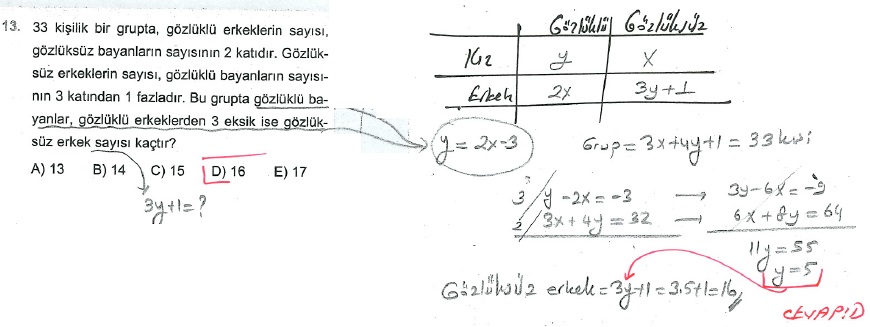 13. 33 kişilik bir grupta, gözlüklü erkeklerin sayısı,
gözlüksüz bayanların sayısının 2 katıdır. Gözlük-
süz erkeklerin sayısı, gözlüklü bayanların sayısı-
nın 3 katından 1 fazladır. Bu grupta gözlüklü ba-
yanlar, gözlüklü erkeklerden 3 eksik ise gözlük-
süz erkek sayısı kaçtır?
A) 13 B) 14 C) 15 D) 16 E) 17
3y+1=?
Gözlüklü Gözlüksüz
Kız y x
Erkek 2x 3y+1
y = 2x-3
Grup = 3x+4y+1 = 33 kişi
3/ y -2x = -3 → 3y-6x = -9
2/ 3x + 4y = 32 → 6x + 8y = 64
11y = 55
y = 5
Gözlüksüz erkek = 3y+1 = 3.5+1 = 16
CEVAP:D